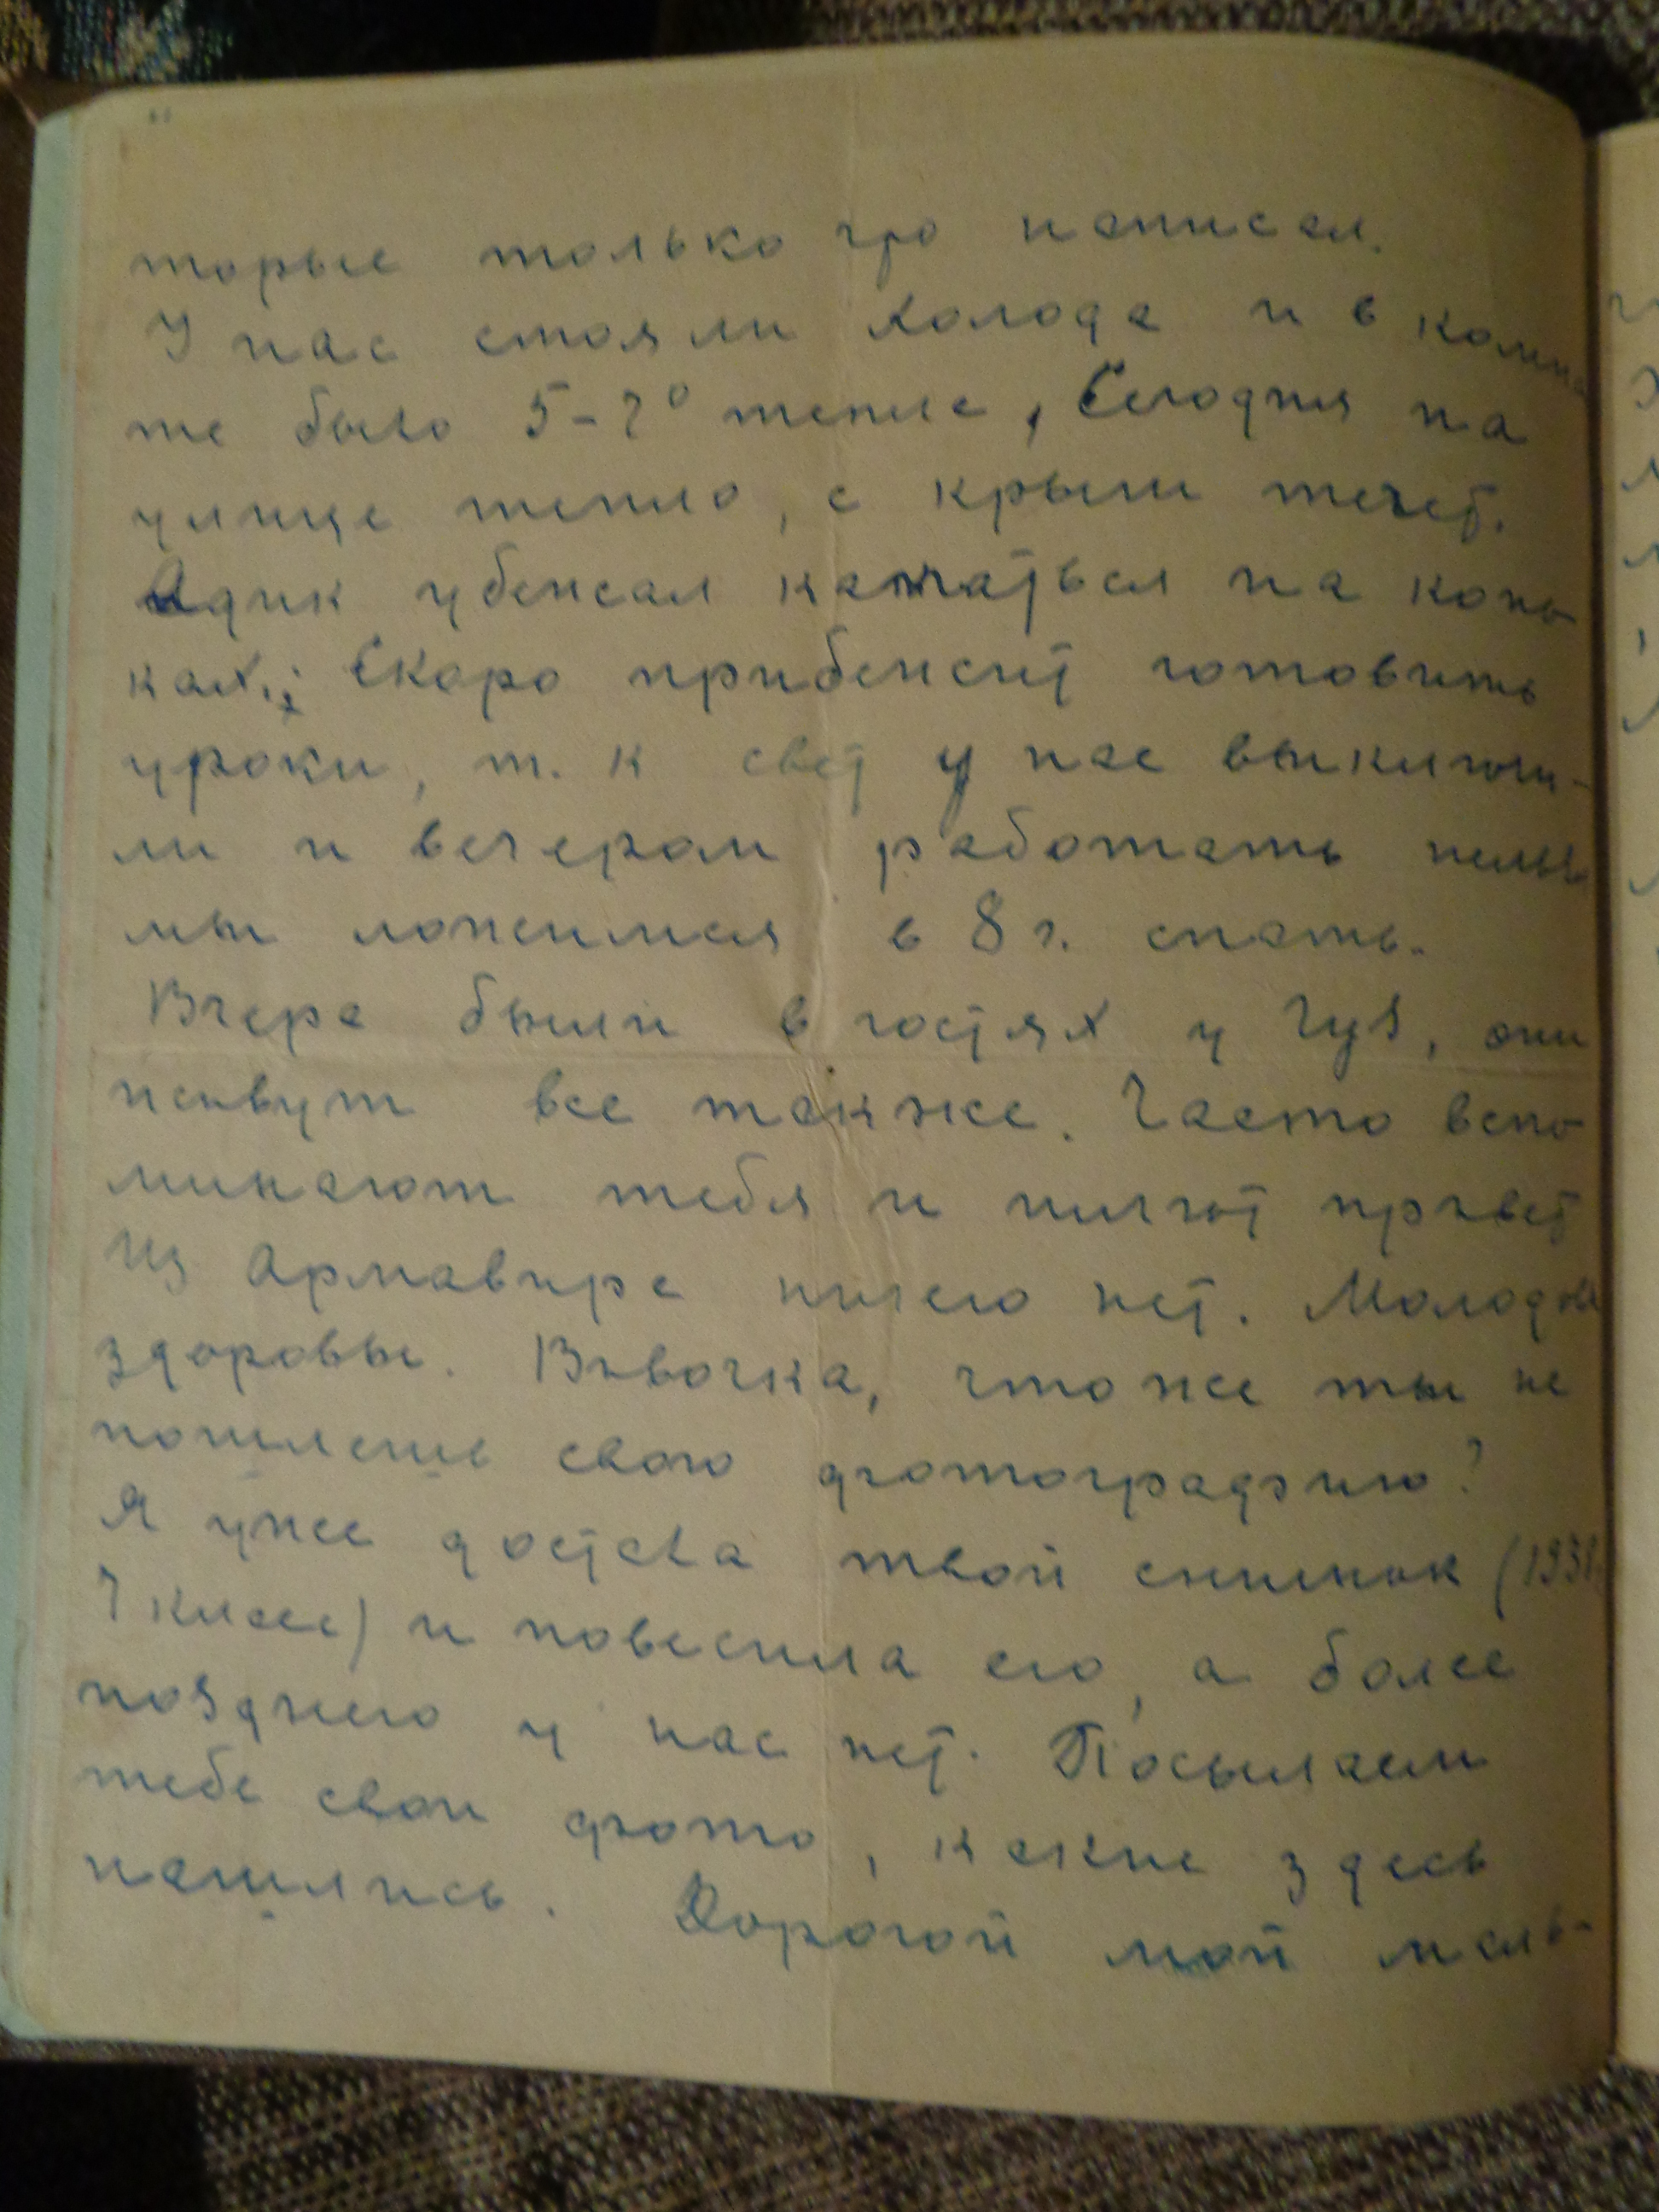 торые только что написал.
У нас стояли холода и в комна
те было 5-7° тепла, Сегодня на
улице тепло, с крыш течет.
Адик убежал кататься на конь
ках. Скоро прибежит готовить
уроки, т. к свет у нас выключи-
ли и вечером работать нельзя
мы ложимся в 8 ч. спать.
Вчера были в гостях у они
живут все также. Часто вспо
минают тебя и шлют привет
Из Армавира ничего нет.
здоровы. Вовочка, что же ты не
пошлешь свою фотографию?
Я уже достала твой снимок (193
7 класс) и повесила его, а более
позднего у нас нет. Посылаем
тебе свои фото, какие здесь
нашлись. Дорогой мой маль-